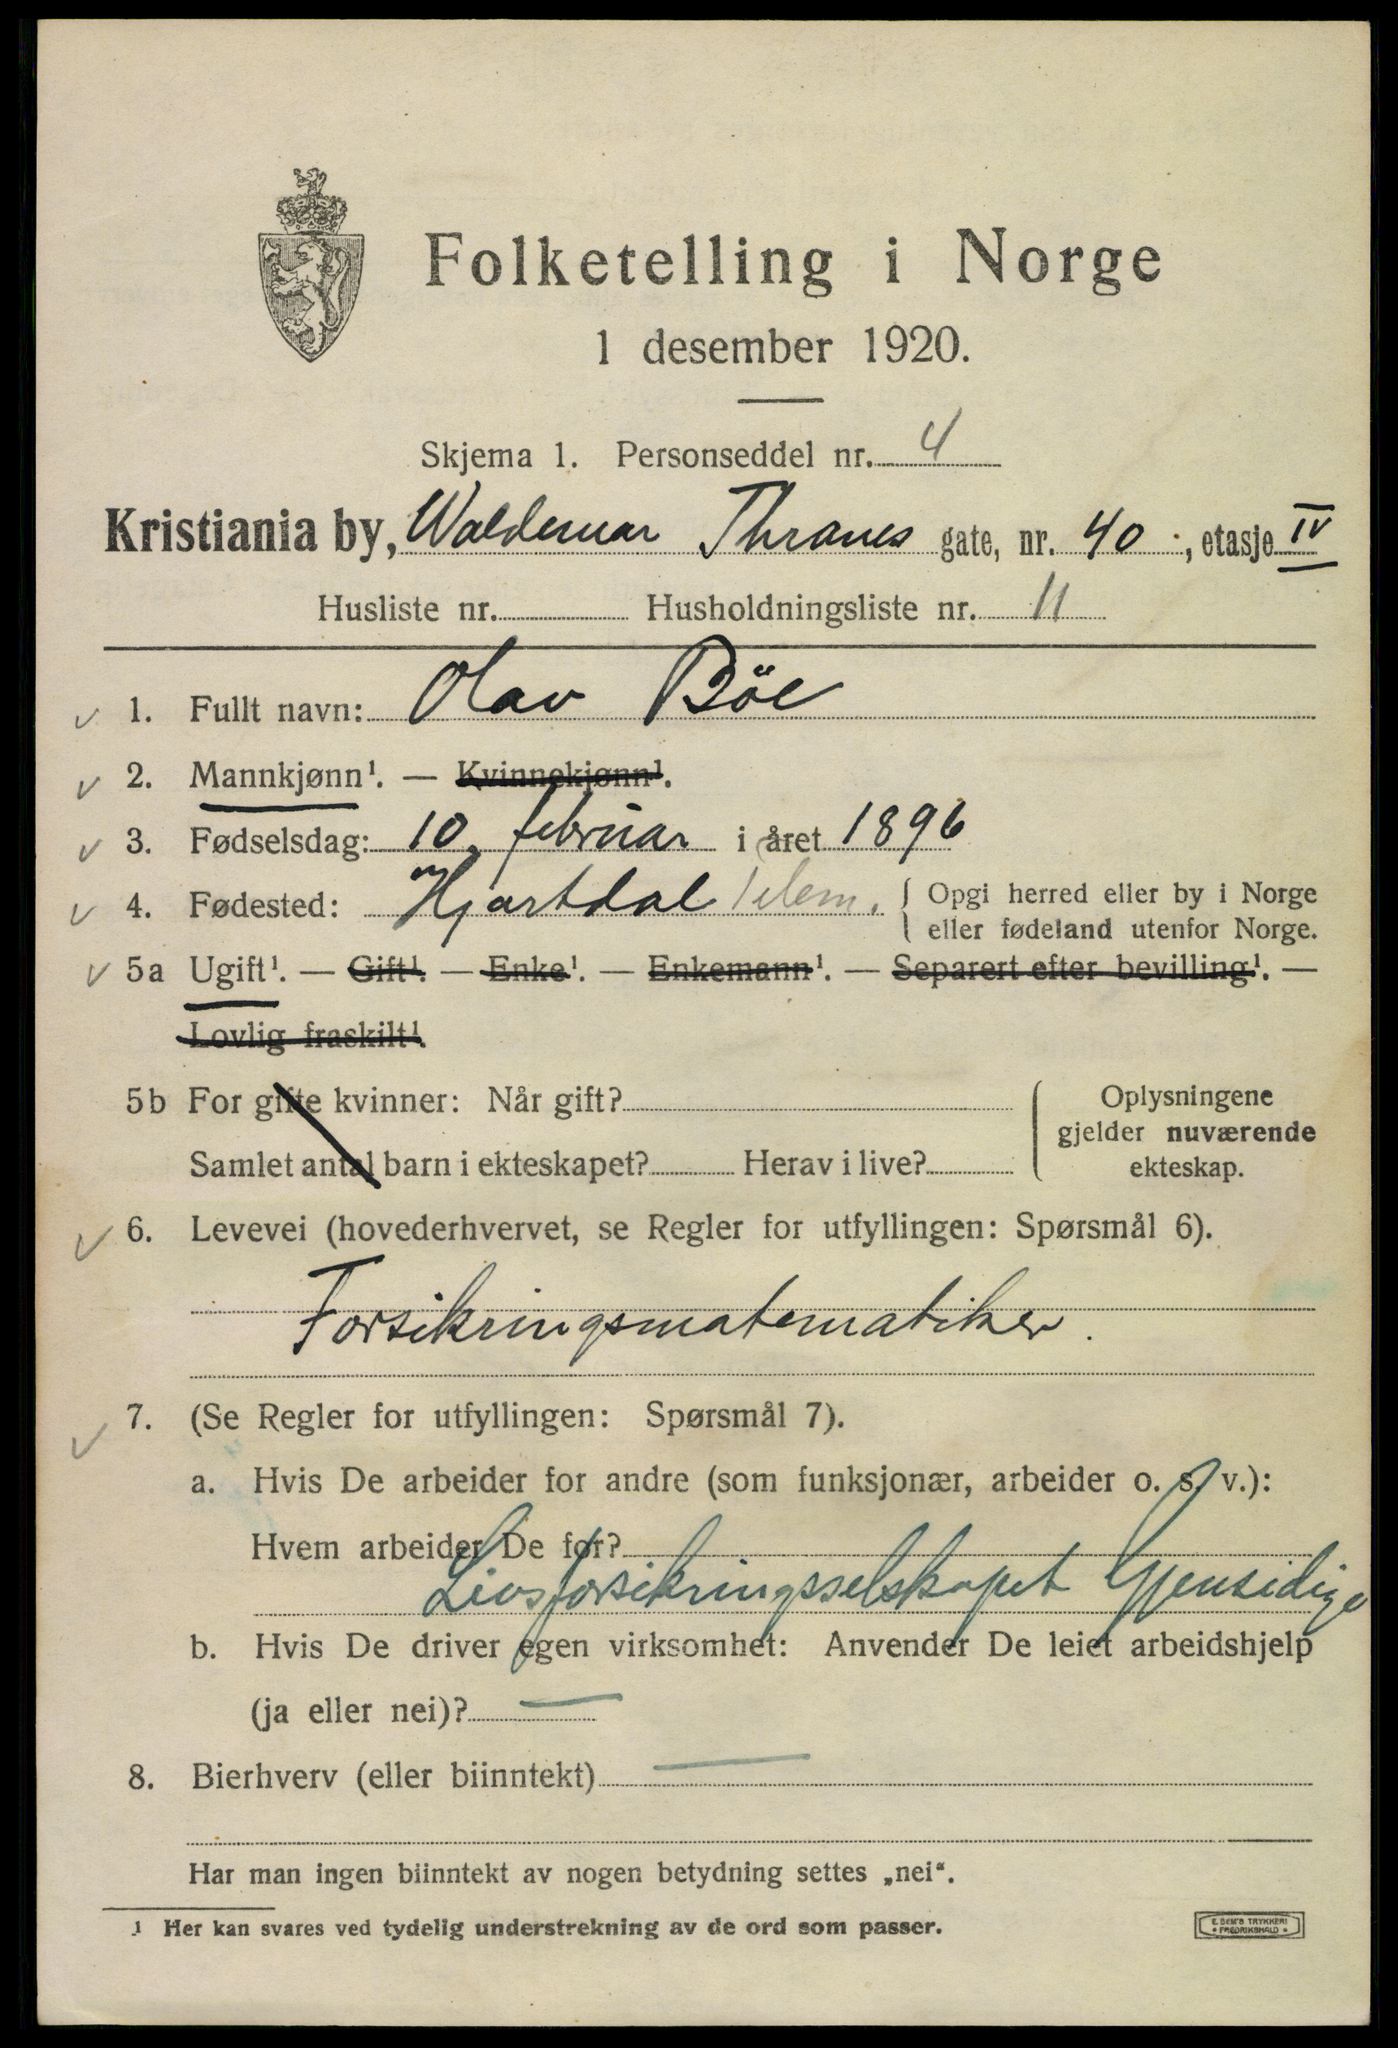 Folketelling i Norge
1 desember 1920.
Skjema 1. Personseddel nr. 4
Kristiania by, Waldemar Thranes gate, nr. 40, etasje IV
Husliste nr. Husholdningsliste nr. 11
1. Fullt navn: Olav Böe
2. Mannkjønn¹. — Kvinnekjønn¹.
3. Fødselsdag: 10. februar i året 1896
4. Fødested: Hjartdal Telem. { Opgi herred eller by i Norge
eller fødeland utenfor Norge.
5a Ugift¹. — Gift¹. — Enke¹. — Enkemann¹. — Separert efter bevilling¹. —
Lovlig fraskilt¹.
5b For gifte kvinner: Når gift? { Oplysningene
gjelder nuværende
Samlet antal barn i ekteskapet? Herav i live? ekteskap.
6. Levevei (hovederhvervet, se Regler for utfyllingen: Spørsmål 6).
Forsikringsmatematiker.
7. (Se Regler for utfyllingen: Spørsmål 7).
a. Hvis De arbeider for andre (som funksjonær, arbeider o. s. v.):
Hvem arbeider De for?
Livsforsikringsselskapet Gjensidige
b. Hvis De driver egen virksomhet: Anvender De leiet arbeidshjelp
(ja eller nei)? —
8. Bierhverv (eller biinntekt) —
Har man ingen biinntekt av nogen betydning settes „nei“.
¹ Her kan svares ved tydelig understrekning av de ord som passer.
E. SEM'S TRYKKERI
• FREDRIKSHALD •